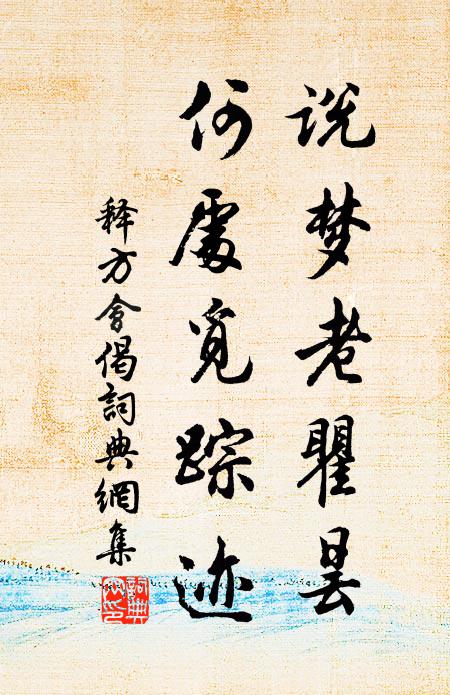 说梦老瞿昙
何处觅踪迹
释方会偈詞典網集